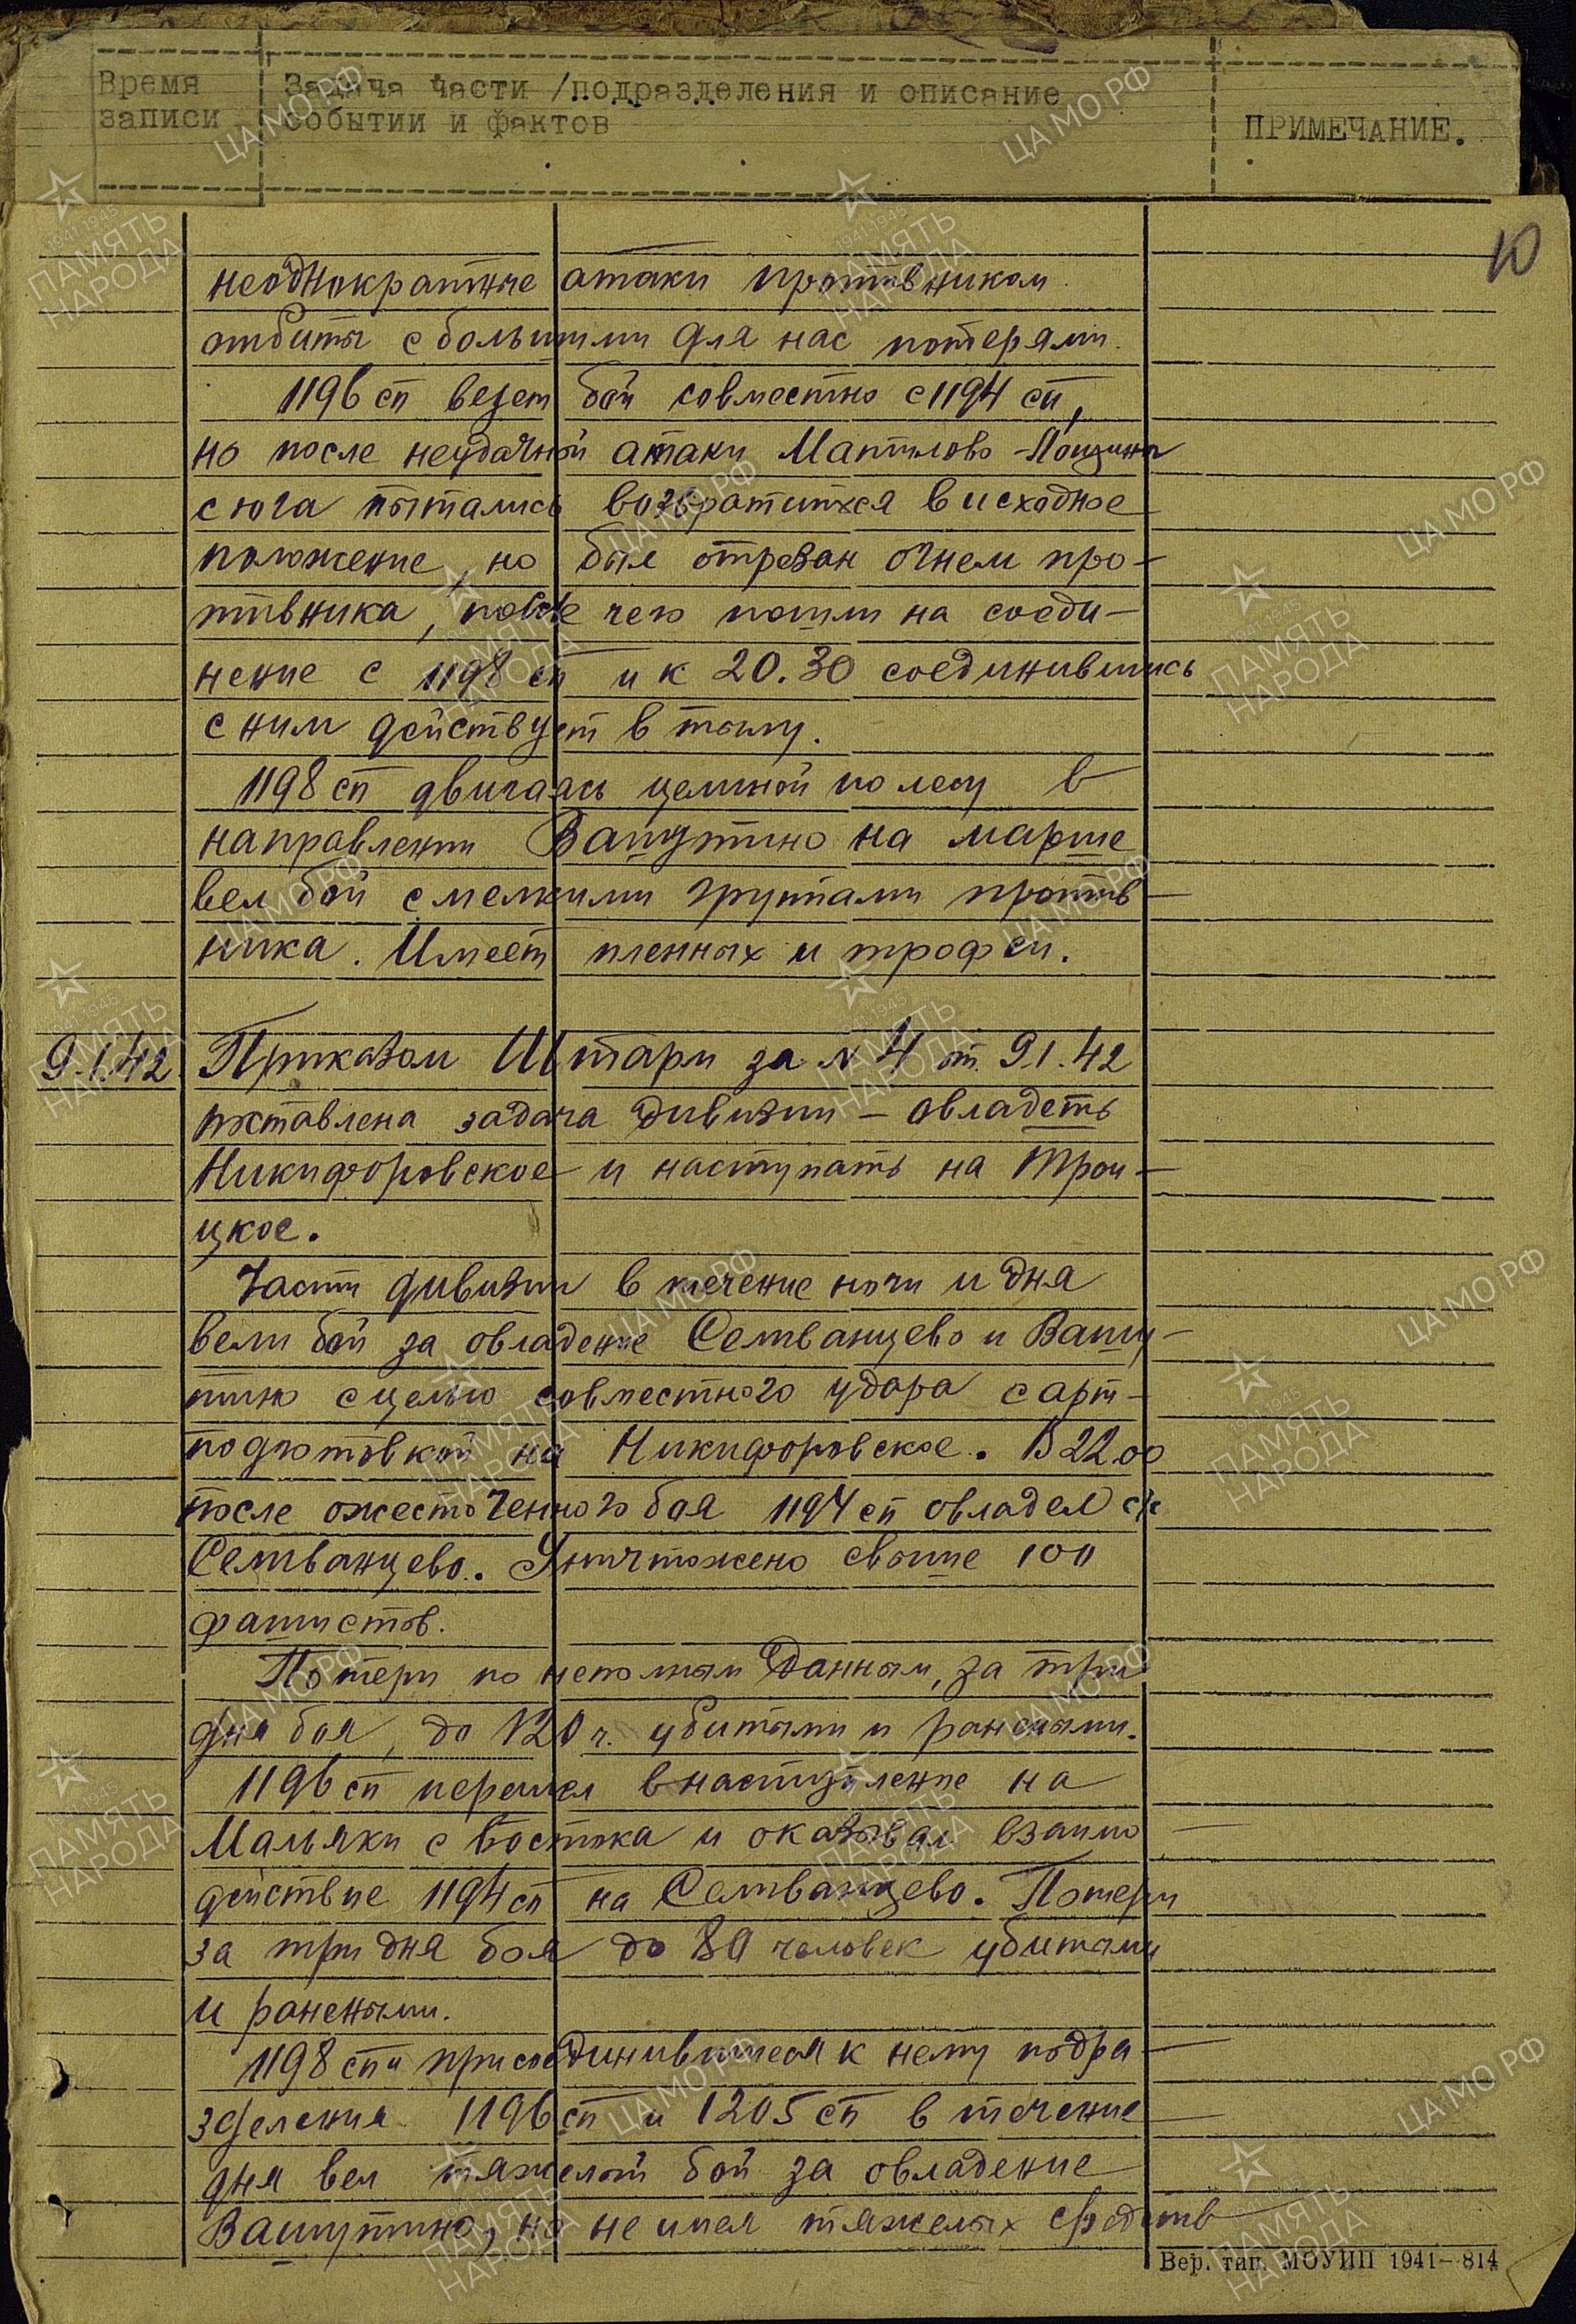 Время записи
Задача части /подразделения и описание
событии и фактов
ПРИМЕЧАНИЕ.
10
неоднократные атаки противником
отбиты с большими для нас потерями.
1196 сп ведет бой совместно с 1194 сп,
но после неудачной атаки
с юга пытались возвратится в исходное
положение, но был отрезан огнем про-
тивника, после чего пошли на соеди-
нение с 1198 сп и к 20.30 соединившись
с ним действует в тылу.
1198 сп двигаясь целиной по лесу в
направлении Вашутино на марше
вел бой с мелкими группами против-
ника. Имеет пленных и трофеи.
9.1.42 Приказом Штарм за № 4 от 9.1.42
поставлена задача дивизии - овладеть
Никифоровское и наступать на Трои-
цкое.
Части дивизии в течение ночи и дня
вели бой за овладение Селиванцево и Вашу-
тино с целью совместного удара с арт-
подготовкой на Никифоровское. В 22.00
после ожесточенного боя 1194 сп овладел
Селиванцево. Уничтожено свыше 100
фашистов.
Потери по неполным данным, за три
дня боя, до 120 ч. убитыми и ранеными.
1196 сп перешел в наступление на
Мальяки с востока и оказывал взаимо-
действие 1194 сп на Селиванцево. Потери
за три дня боя до 80 человек убитыми
и ранеными.
1198 сп и присоединившиеся к нему подра-
зделения 1196 сп и 1205 сп в течение
дня вел тяжелый бой за овладение
Вашутино, но не имея тяжелых средств
Вер. тип. МОУНП 1941-814
ЦА МО РФ
1941-1945
ПАМЯТЬ
НАРОДА